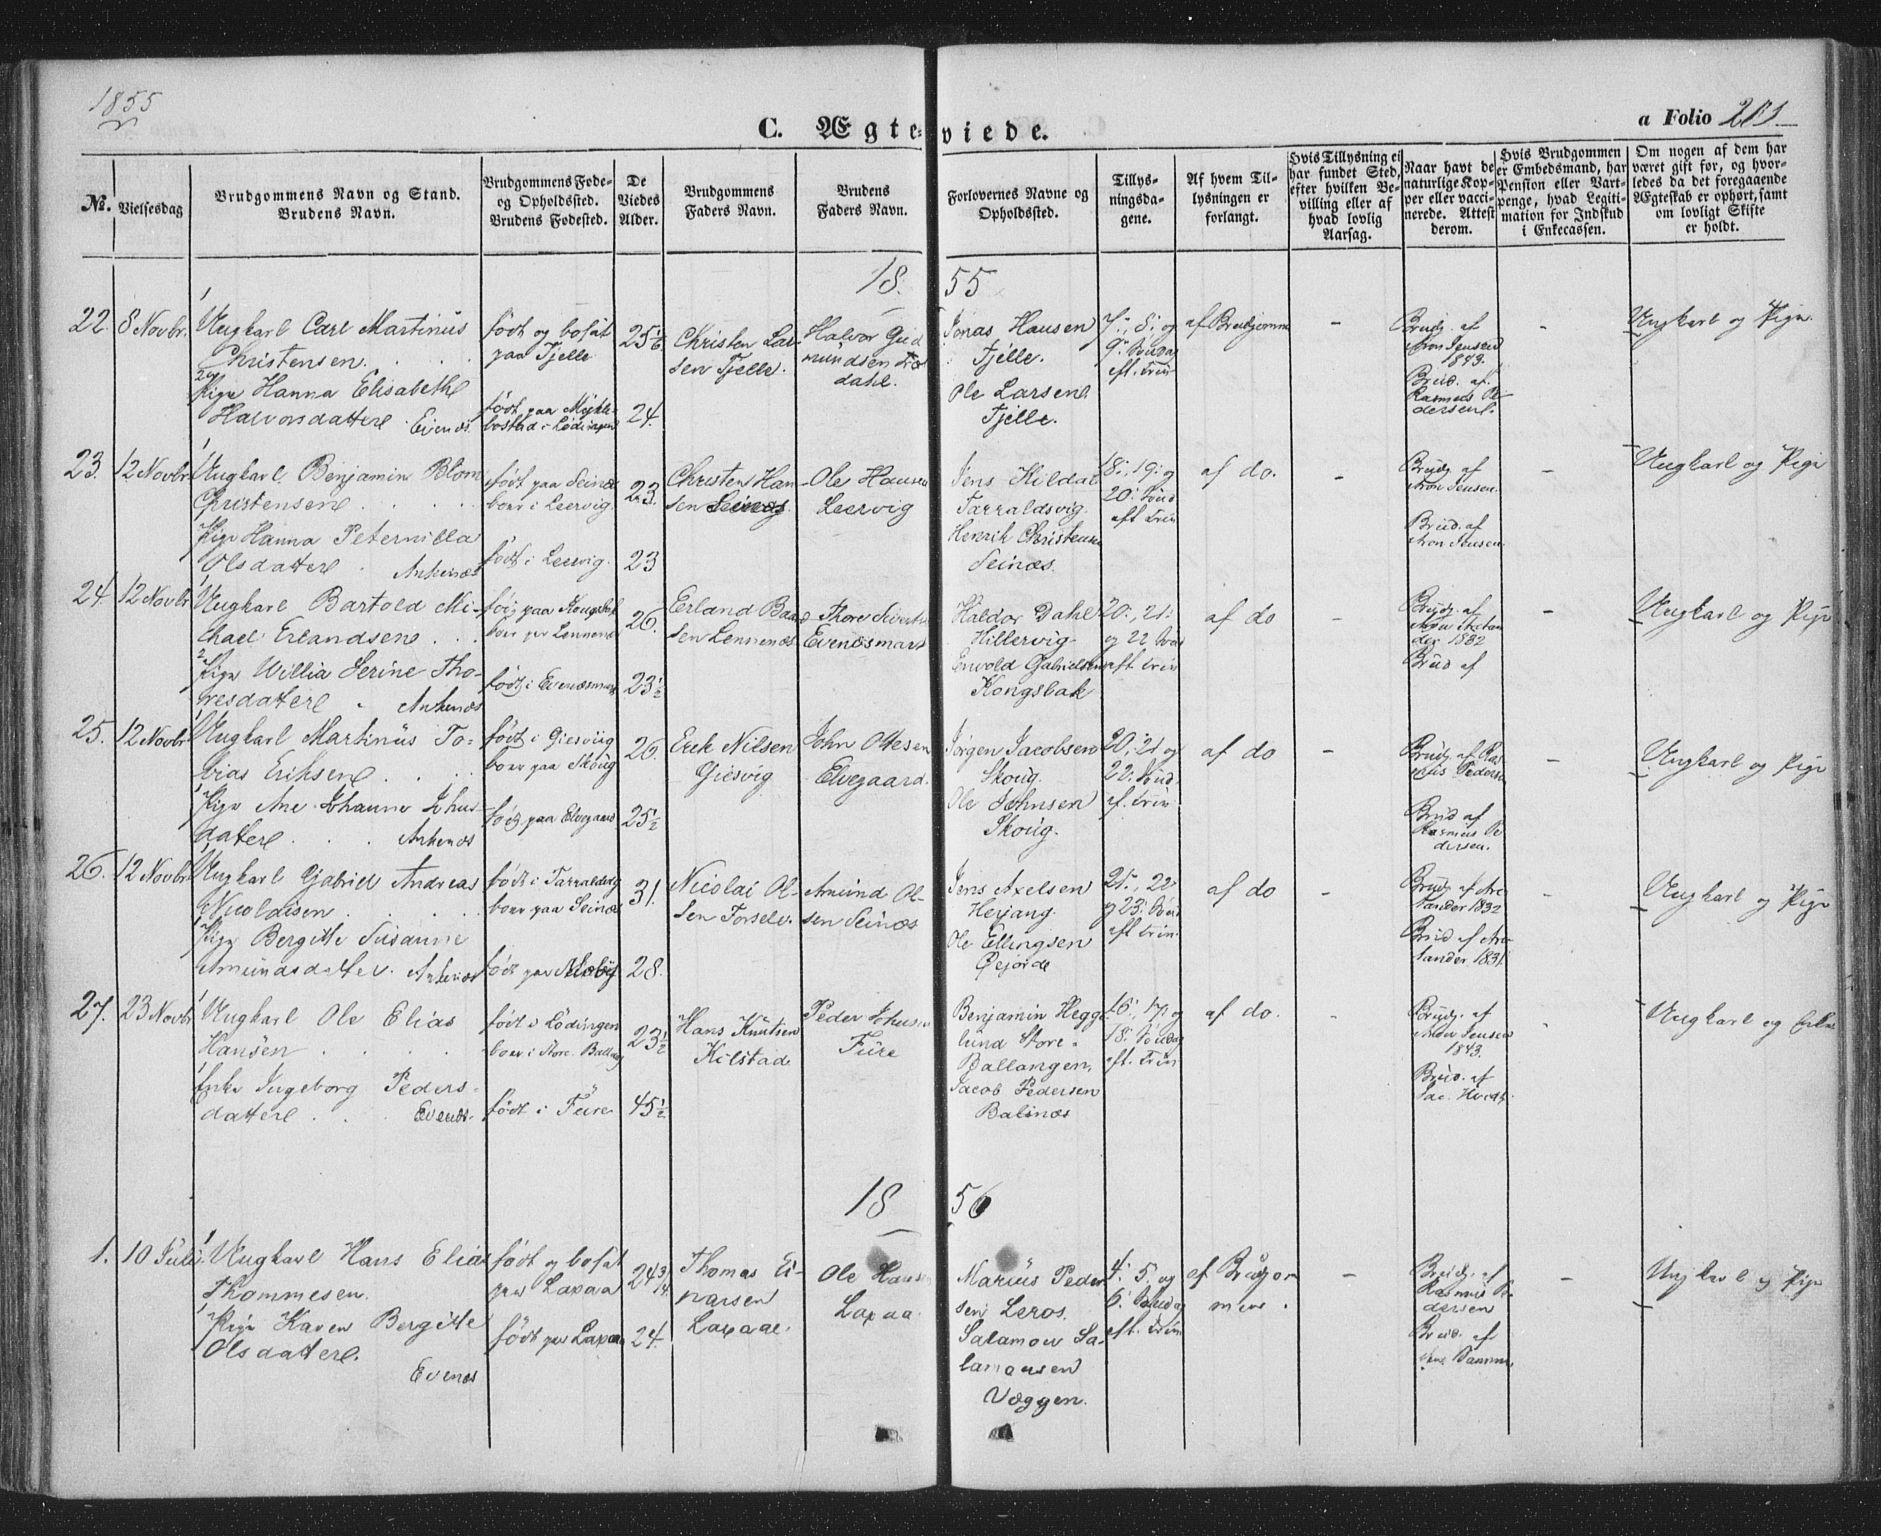 1855
C. Ægteviede.
a Folio 201
No.
Vielsesdag
Brudgommens Navn og Stand.
Brudens Navn.
Brudgommens Føde-
og Opholdssted.
Brudens Fødested.
De
Viedes
Alder.
Brudgommens
Faders Navn.
Brudens
Faders Navn.
Forlovernes Navne og
Opholdssted.
Tillys-
ningsda-
gene.
Af hvem Til-
lysningen er
forlangt.
Hvis Tillysning ei
har fundet Sted,
efter hvilken Be-
villing eller af
hvad lovlig
Aarsag.
Naar havt de
naturlige Kop-
per eller vacci-
nerede. Attest
derom.
Hvis Brudgommen
er Embedsmand, har
Pension eller Vart-
penge, hvad Legiti-
mation for Indskud
i Enkecassen.
Om nogen af dem har
været gift før, og hvor-
ledes da det foregaaende
Ægteskab er ophørt, samt
om lovligt Skifte
er holdt.
18 55
22. 8 Novbr.
Ungkarl Carl Martinus
Christensen.
Pige Hanna Elisabeth
Halvorsdatter. Evenæs.
født og bosat
paa Tjelle
født paa Mykle-
bostad i Lødingen
25 1/6
24.
Christen Lar-
sen Tjelle.
Halvor Gud
mundsen
dahl.
Jonas Hansen
Tjelle.
Ole Larsen
Tjelle.
7:, 8: og
9: Søndag
eft. Trin
af Brudgomme
-
Brudg. af
Aron Jensen
1843.
Brud. af
Rasmus Pe-
dersen.
-
Ungkarl og Pige
23. 12 Novbr
Ungkarl Benjamin Blom
Christensen
Pige Hanna Peternilla
Olsdatter. Ankenæs
født paa Seinæs
boer i Leervig.
født i Leervig.
23.
23
Christen Han-
sen Seinæs
Ole Hansen
Leervig
Jens Kildal
Tarraldsvig.
Henrik Christensen
Seinæs.
18:, 19: og
20: Sønd
eft Trin
af do.
-
Brudg. af
Aron Jensen.
Brud. af
Aron Jensen.
-
Ungkarl og Pige
24. 12 Novbr
Ungkarl Bartold Mi-
chael Erlandsen
Pige Willia Serine Tho-
resdatter Ankenæs
født paa Kongsbak
boer paa Lennenæs
født i Evenæsmark
26.
23 1/2
Erland Baar
sen Lennenæs
Thore Sivertsen
Evenæsmark
Haldor Dahl
Hillervig.
Enwold Gabrielsen
Kongsbak
20:, 21:
og 22 Søn
eft Trin
af do
-
Brudg. af
1832
Brud af
-
Ungkarl og Pige
25. 12 Novbr
Ungkarl Martinus To-
bias Eriksen
Pige Ane Johanne Johns-
datter Ankenæs
født i Giesviig
boer paa Skoug
født paa Elvegaard
26.
25 1/2
Erik Nilsen
Giesvig
John Olesen
Elvegaard.
Jørgen Jacobsen
Skoug.
Ole Johnsen
Skoug.
20:, 21 og
22: Sønd.
ef. Trin
af do
-
Brudg. af Ras
mus Pedersen
Brud af
Rasmus Pe
dersen.
-
Ungkarl og Pige
26. 12 Novbr
Ungkarl Gabriel Andreas
Nicolaisen
Pige Bergitte Susanne
Amundsdatter. Ankenæs
født i Tarraldsvig
boer paa Seinæs
født paa
31.
28.
Nicolai Ol-
sen Forsele.
Amund Ol-
sen Seinæs
Jens Axelsen
Herjang.
Ole Ellingsen
Øejorde
21:, 22:
og 23: Sønd
eft Trin
af do
-
Brudg. af
1832
Brud af
1831
Ungkarl og Pige
27. 23 Novbr
Ungkarl Ole Elias
Hansen
Enke Ingeborg Peders-
datter Evenæs.
født i Lødingen
boer i Store Ballang
født i Fure
23 1/2
45 1/2
Hans Knutsen
Kilstad
Peder Johnsen
Fure
Benjamin Hegge
lund Store-
Ballangen,
Jacob Pedersen
Balsnæs
16:, 17: og
18: Søndag
eft. Trin
af do.
-
Brudg. af
Aron Jensen
1843.
Brud. af
Jac.
-
Ungkarl og Enke
18 56
1. 10 Juli.
Ungkarl Hans Elias
Thommesen.
Pige Karen Bergitte
Olsdatter.
Evenæs
født og bosat
paa Laxaa
født paa Laxaa
24 3/4
24.
Thomas Ei-
narsen
Laxaae.
Ole Hansen
Laxaa.
Marius Peder
sen Leros.
Salamon Sa-
lamonsen
Væggen.
4: 5: og
6: Søndag
eft. Trin
af Brudgom
men.
-
Brudg. af
Rasmus Pe
dersen
Brud. af
-
Ungkarl og Pige